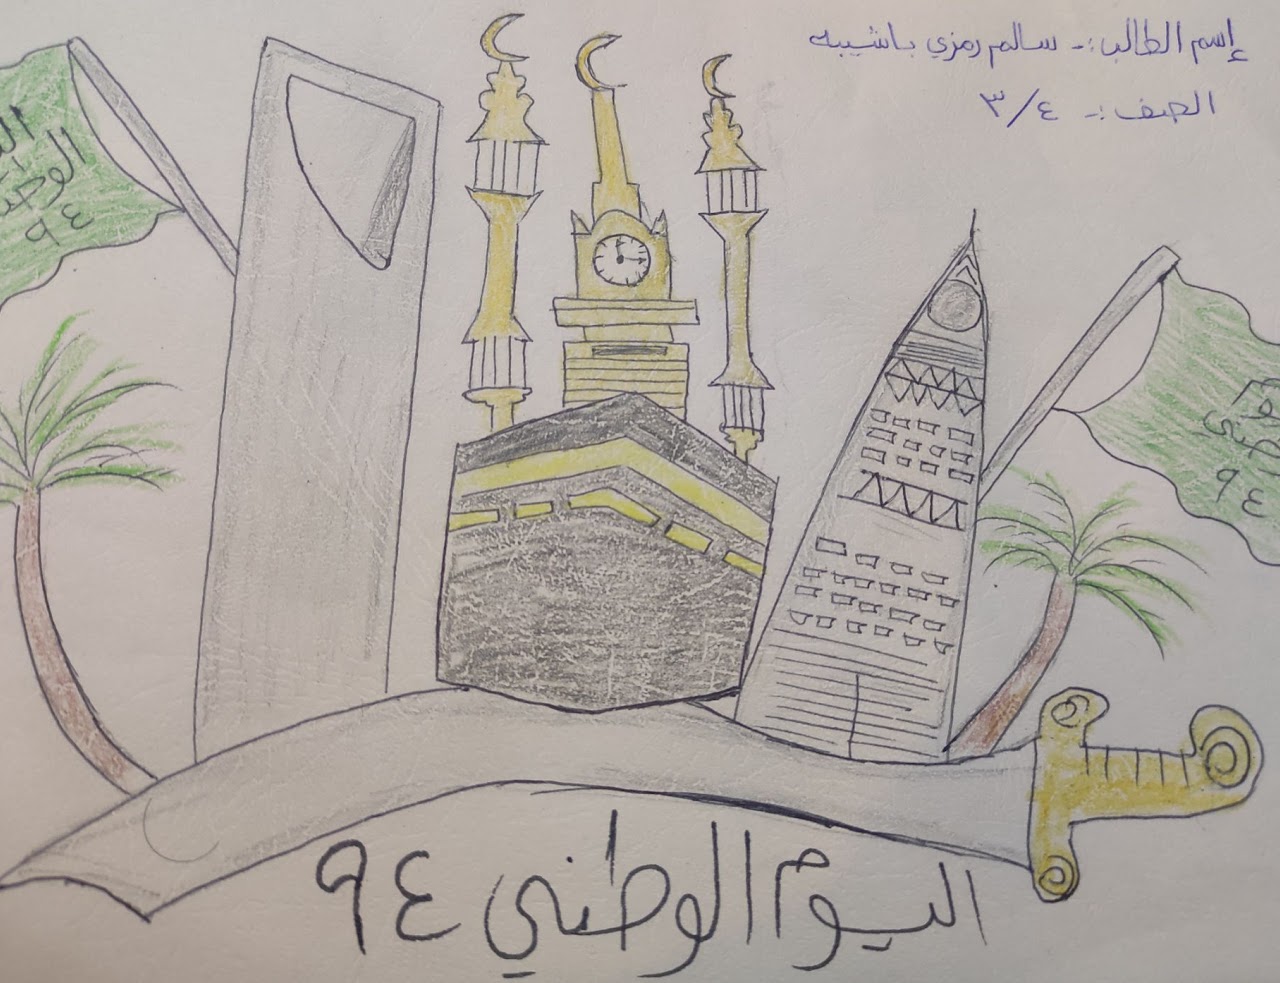 إسم الطالب :- سالم رمزي باشيبه
الصف :- ٣/٤
الوطني
٩٤
٩٤
اليوم الوطني ٩٤